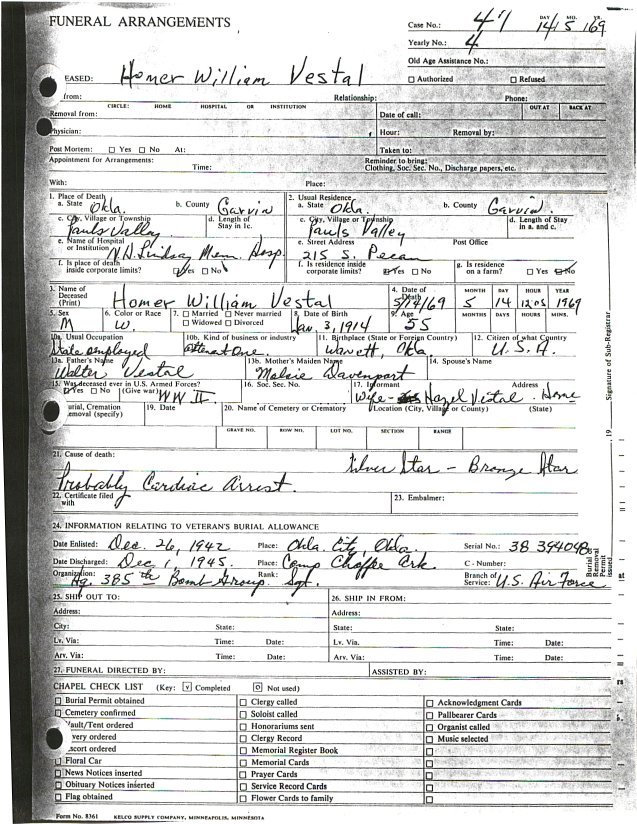 FUNERAL ARRANGEMENTS
Case No.: 41 DAY MO. YR.
14 / 5 / 69
Yearly No.: 4
Old Age Assistance No.:
EASED: Homer William Vestal
☐ Authorized ☐ Refused
from: Relationship: Phone:
CIRCLE: HOME HOSPITAL OR INSTITUTION OUT AT BACK AT
Removal from: Date of call:
Physician: Hour: Removal by:
Post Mortem: ☐ Yes ☐ No At: Taken to:
Appointment for Arrangements: Reminder to bring:
Time: Clothing, Soc. Sec. No., Discharge papers, etc.
With: Place:
1. Place of Death 2. Usual Residence
a. State Okla. b. County Garvin a. State Okla. b. County Garvin
c. City, Village or Township d. Length of Stay in 1c. c. City, Village or Township d. Length of Stay in a. and c.
Pauls Valley Pauls Valley
e. Name of Hospital or Institution Lindsay Mem. Hosp e. Street Address Post Office
215 S. Pecan
f. Is place of death inside corporate limits? ☑ Yes ☐ No f. Is residence inside corporate limits? ☑ Yes ☐ No g. Is residence on a farm? ☐ Yes ☑ No
3. Name of Deceased (Print) Homer William Vestal 4. Date of Death 5/14/69 MONTH DAY HOUR YEAR
5 14 1205 1969
5. Sex 6. Color or Race 7. ☐ Married ☐ Never married 8. Date of Birth 9. Age MONTHS DAYS HOURS MINS.
M W. ☐ Widowed ☐ Divorced Jan. 3, 1914 55
10a. Usual Occupation 10b. Kind of business or industry 11. Birthplace (State or Foreign Country) 12. Citizen of what Country
State employed Wanett, Okla U.S.A.
13a. Father's Name 13b. Mother's Maiden Name 14. Spouse's Name
Walter Vestal Davenport
15. Was deceased ever in U.S. Armed Forces? 16. Soc. Sec. No. 17. Informant Address
☑ Yes ☐ No (Give war) WW II Wife - Hazel Vestal. Home
urial, Cremation emoval (specify) 19. Date 20. Name of Cemetery or Crematory Location (City, Village or County) (State)
GRAVE NO. ROW NO. LOT NO. SECTION RANGE
21. Cause of death: Silver Star - Bronze Star
Probably Cardiac Arrest.
22. Certificate filed with 23. Embalmer:
24. INFORMATION RELATING TO VETERAN'S BURIAL ALLOWANCE
Date Enlisted: Dec. 26, 1942 Place: Okla. City, Okla. Serial No.: 38 394048
Date Discharged: Dec. 1, 1945. Place: Camp Chaffe Ark. C - Number:
Organization: Hq. 385th Bomb Group. Rank: Sgt. Branch of Service: U.S. Air Force
25. SHIP OUT TO: 26. SHIP IN FROM:
Address: Address:
City: State: State: State:
Lv. Via: Time: Date: Lv. Via. Time: Date:
Arv. Via: Time: Date: Arv. Via: Time: Date:
27. FUNERAL DIRECTED BY: ASSISTED BY:
CHAPEL CHECK LIST (Key: ☑ Completed ☐ Not used)
☐ Burial Permit obtained ☐ Clergy called ☐ Acknowledgment Cards
☐ Cemetery confirmed ☐ Soloist called ☐ Pallbearer Cards
ault/Tent ordered ☐ Honorariums sent ☐ Organist called
very ordered ☐ Clergy Record ☐ Music selected
scort ordered ☐ Memorial Register Book ☐
☐ Floral Car ☐ Memorial Cards ☐
☐ News Notices inserted ☐ Prayer Cards ☐
☐ Obituary Notices inserted ☐ Service Record Cards ☐
☐ Flag obtained ☐ Flower Cards to family ☐
Form No. 8361 KELCO SUPPLY COMPANY, MINNEAPOLIS, MINNESOTA
Signature of Sub-Registrar
19
Burial or Removal Permit issued